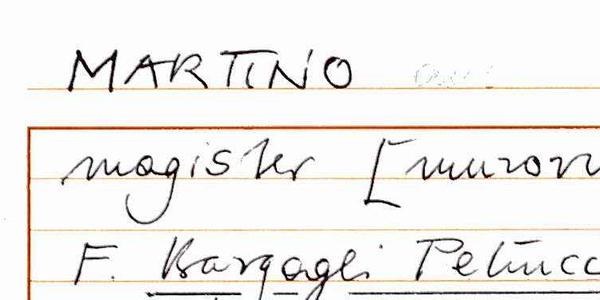 MARTINO
magister [muror
F. Bargagli Petrucc